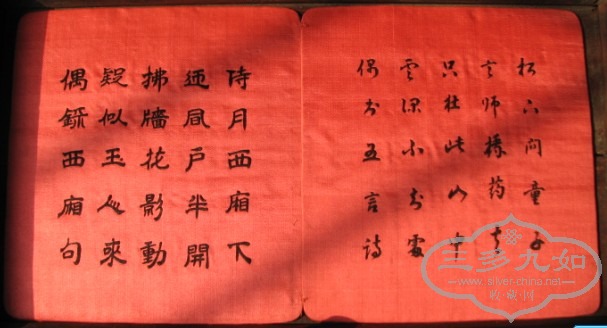 松下问童子
言师採药去
只在此山中
雲深不知處
偶书五言詩
待月西廂下
迎風戶半開
拂牆花影動
疑似玉人來
偶錄西廂句
三多九如
www.silver-china.net
收藏网